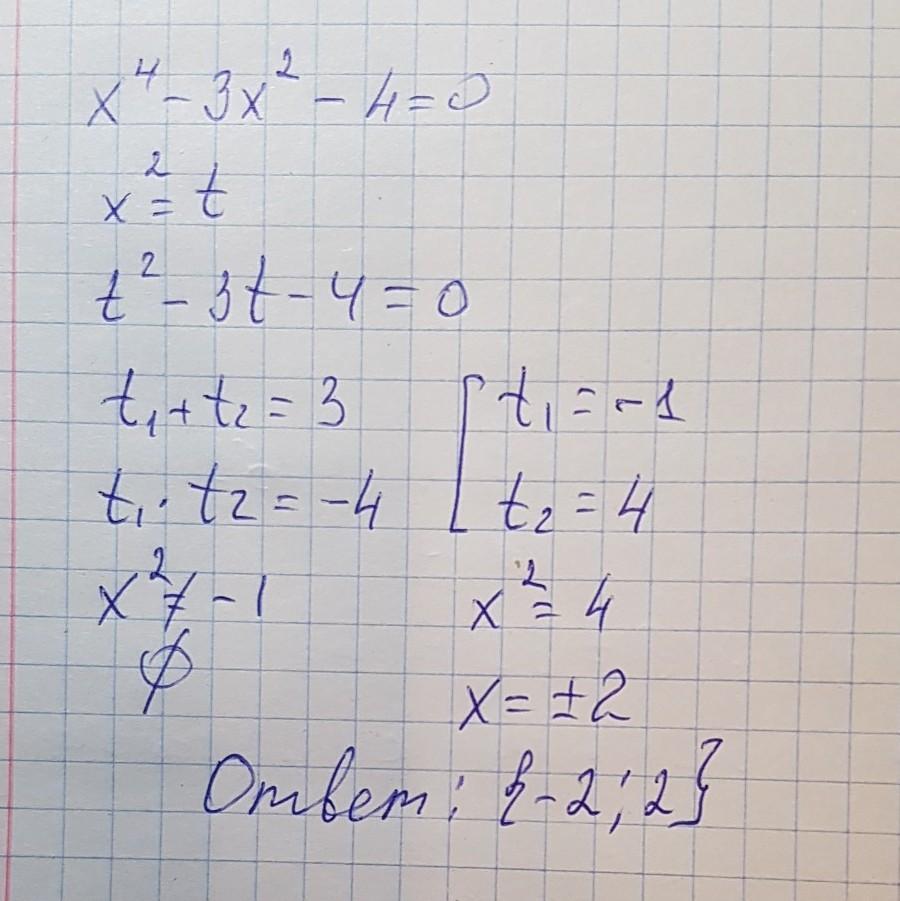 x⁴ - 3x² - 4 = 0
x² = t
t² - 3t - 4 = 0
t₁ + t₂ = 3 [ t₁ = -1
t₁ · t₂ = -4 t₂ = 4
x² ≠ -1 x² = 4
∅ x = ±2
Ответ: {-2; 2}